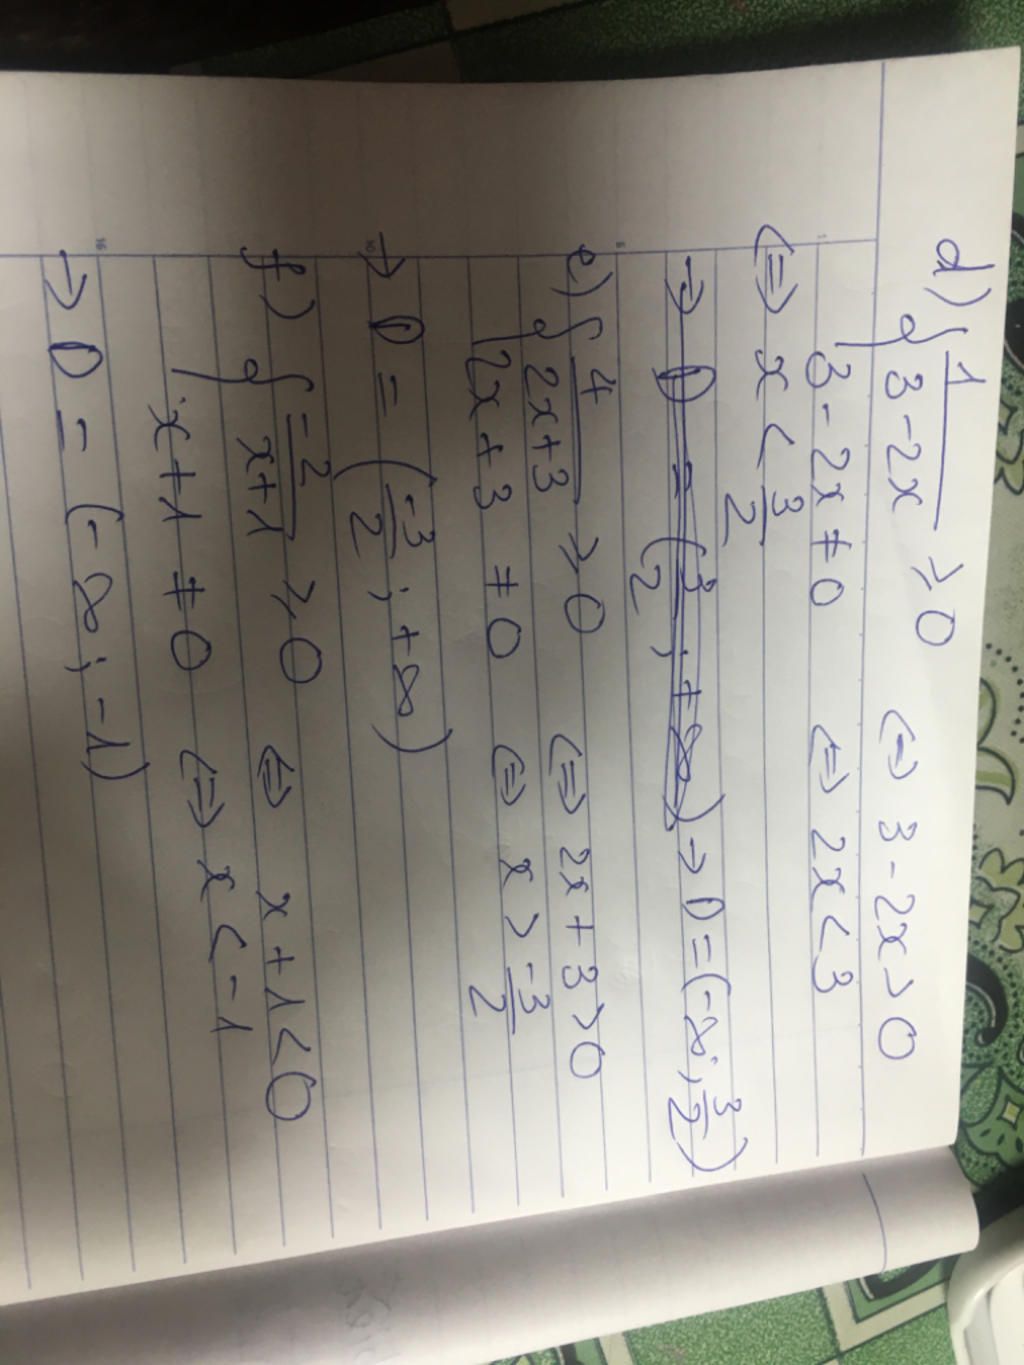 d) { 1/(3-2x) ≥ 0 <=> 3-2x>0
3-2x≠0 <=> 2x<3
<=> x < 3/2
→ D = (3/2; +∞) → D=(-∞; 3/2)
e) { 4/(2x+3) ≥ 0 <=> 2x+3>0
2x+3 ≠0 <=> x > -3/2
→ D = (-3/2; +∞)
f) { -2/(x+1) ≥ 0 <=> x+1<0
x+1 ≠0 <=> x<-1
→ D = (-∞; -1)